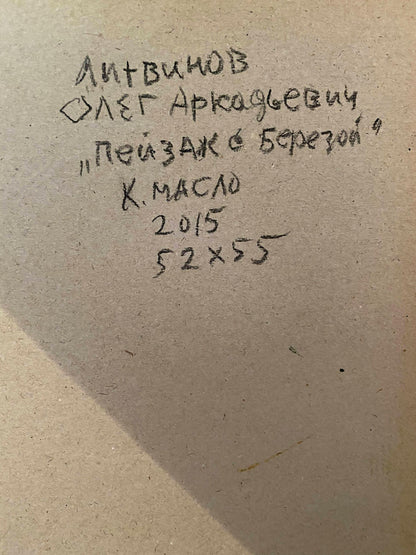 Литвинов
Олег Аркадьевич
„Пейзаж с березой"
К. масло
2015
52x55